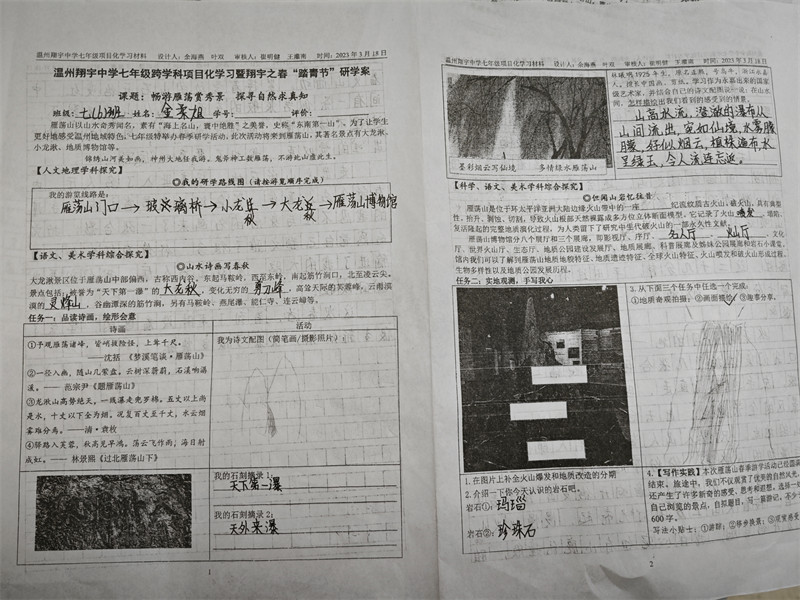 温州翔宇中学七年级项目化学习材料 设计人：金海燕 叶双 审核人：崔明健 王雁南 时间：2023年3月18日
温州翔宇中学七年级跨学科项目化学习暨翔宇之春“踏青节”研学案
课题：畅游雁荡赏秀景 探寻自然求真知
班级：七(6)班 姓名： 学号： 评价：
雁荡山以山水奇秀闻名，素有“海上名山，寰中绝胜”之美誉，史称“东南第一山”。为了让学生
更好地感受温州地域特色，七年级特举办春季研学活动。此次活动将来到雁荡山，其著名景点有大龙湫、
小龙湫、地质博物馆等。
锦绣山河美如画，神州大地任我游。鬼斧神工毅雁荡，不游此山虚此生。
【人文地理学科探究】
◎我的研学路线图（请按游览顺序完成）
我的游览线路是：
雁荡山门口→玻璃桥→小龙湫→大龙湫→雁荡山博物馆
【语文、美术学科综合探究】
◎山水诗画写春秋
大龙湫景区位于雁荡山中部偏西，古称西内谷，东起马鞍岭，西至东岭，南起筋竹涧口，北至凌云尖。
景点包括：被誉为“天下第一瀑”的大龙湫，变化无穷的剪刀峰，高耸天际的芙蓉峰，云雨漠
漠的灵峰山，谷幽潭深的筋竹涧，另有马鞍岭、燕尾瀑、能仁寺、连云嶂等。
任务一：品读诗画，绘形会意
诗画 活动
①予观雁荡诸峰，皆峭拔险怪，上耸千尺。 我为诗文配图（简笔画/摄影照片）
——沈括 《梦溪笔谈·雁荡山》
②一径入幽，随山几萦盘。云树深蔚蔚，石溪响潺
潺。—— 范宗尹《题雁荡山》
③龙湫山高势绝天，一线瀑走兜罗棉。五丈以上尚
是水，十丈以下全为烟。况复百丈至千丈，水云烟
雾难分焉。——清·袁枚
④驿路入芙蓉，秋高见早鸿。荡云飞作雨，海日射
成虹。—— 林景熙《过北雁荡山下》
我的石刻摘录1：
天下第一瀑
我的石刻摘录2：
天外来瀑
1
温州翔宇中学七年级项目化学习材料 设计人：金海燕 叶双 审核人：崔明健 王雁南 时间：2023年3月18日
墨彩烟云写仙境 多情绿水雁荡山
林曦明，1925年生，
级艺术家，并结合自己的诗文配图谈一谈，在山水
间，怎样描绘出我们看到的感受到的情景。
山高水流，澄澈的瀑布从
山间流出，宛如仙境，水雾朦
朦，好似烟云，植株遍布，水
呈绿玉，令人流连忘返。
【科学、语文、美术学科综合探究】
◎但闻山岩忆往昔
雁荡山是位于环太平洋亚洲大陆边缘火山带中的一座 纪流纹质古火山，破火山，其具有演
性，抬升、剥蚀、切割，导致火山根部天然裸露成多方位立体断面模型。它记录了火山喷发、塌陷、
复活隆起的完整地质演化过程，为人类留下了研究中生代破火山的一部永久性文献。
雁荡山博物馆分八个展厅和三个展廊，即影视厅、序厅、名人厅、火山厅、文化
厅、世界火山厅、生态厅、地质公园建设发展厅、地质展廊、科普展廊及姊妹公园展廊和宏石小课堂。
馆内我们可以了解到雁荡山地质地貌特征、地质遗迹特征、全球火山特征、火山喷发和破火山形成过程、
生物多样性以及地质公园发展历程。
任务二：实地观测，手写我心
3. 从下面三个任务中任选一个完成：
①地质奇观拍摄；②画面描绘；③趣事分享。
1. 在图片上补全火山爆发和地质改造的分期
2. 介绍一下你今天认识的岩石吧。
岩石①：玛瑙
岩石②：珍珠石
4.【写作实践】本次雁荡山春季游学活动已经圆满
结束。旅途中，我们不仅观赏了优美的自然风光，
还产生了许多新奇的感受、思考和联想。选择一处
自己浏览的景点，自拟题目，写一篇游记。不少于
600字。
写法小贴士：①游踪；②移步换景；③观赏感受
2